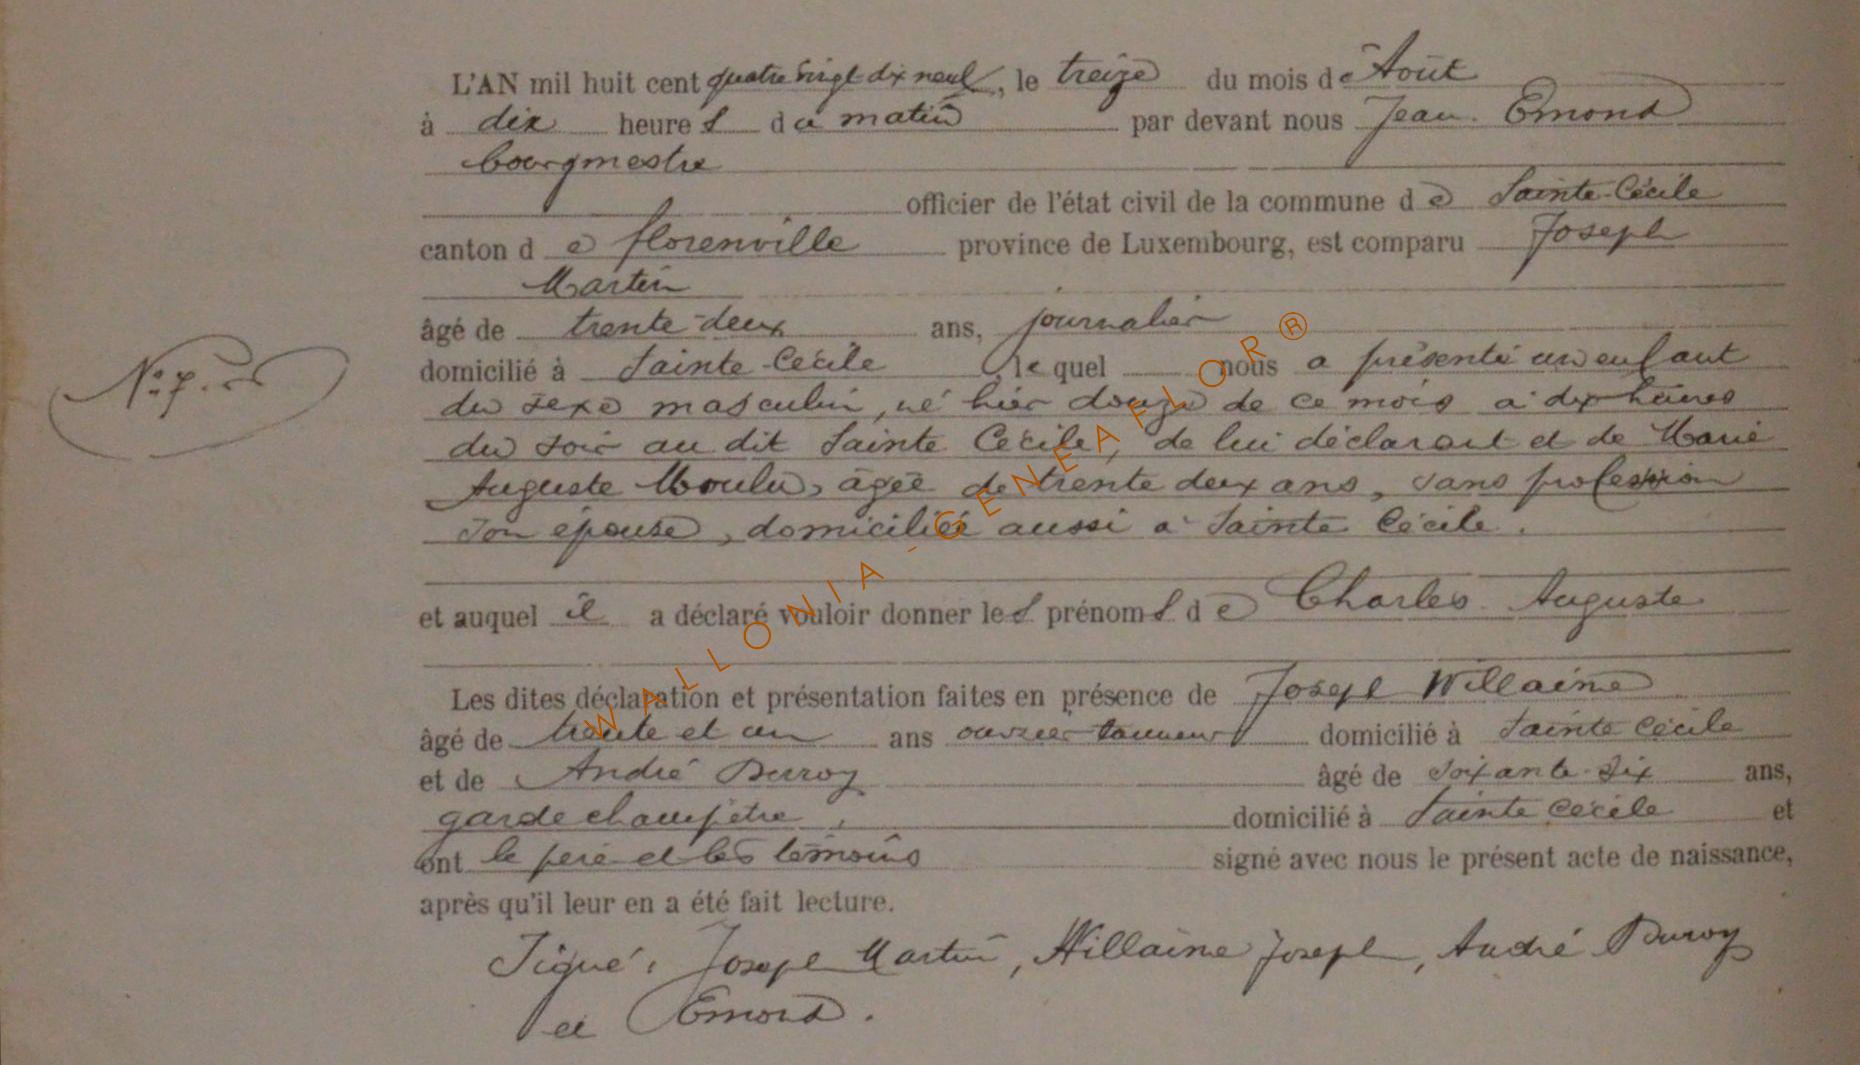 L'AN mil huit cent quatre vingt dix neuf, le treize du mois de Août
à dix heures du matin par devant nous Jean Emond
bourgmestre
officier de l'état civil de la commune de Sainte-Cécile
canton de florenville province de Luxembourg, est comparu Joseph
Martin
âgé de trente-deux ans, journalier
domicilié à Sainte-Cécile lequel nous a présenté un enfant
du sexe masculin, né hier douze de ce mois à dix heures
du soir au dit Sainte Cécile, de lui déclarant et de Marie
Auguste Moulu, âgée de trente deux ans, sans profession
son épouse, domiciliée aussi à Sainte Cécile.
et auquel il a déclaré vouloir donner les prénoms de Charles Auguste
Les dites déclaration et présentation faites en présence de Joseph Willaime
âgé de trente et un ans ouvrier tanneur domicilié à Sainte Cécile
et de André Duroy âgé de soixante-six ans,
garde champêtre, domicilié à Sainte Cécile et
ont le père et les témoins signé avec nous le présent acte de naissance,
après qu'il leur en a été fait lecture.
Signé, Joseph Martin, Willaime Joseph, André Duroy
et Emond.
WALLONIA-GENEAFLOR®